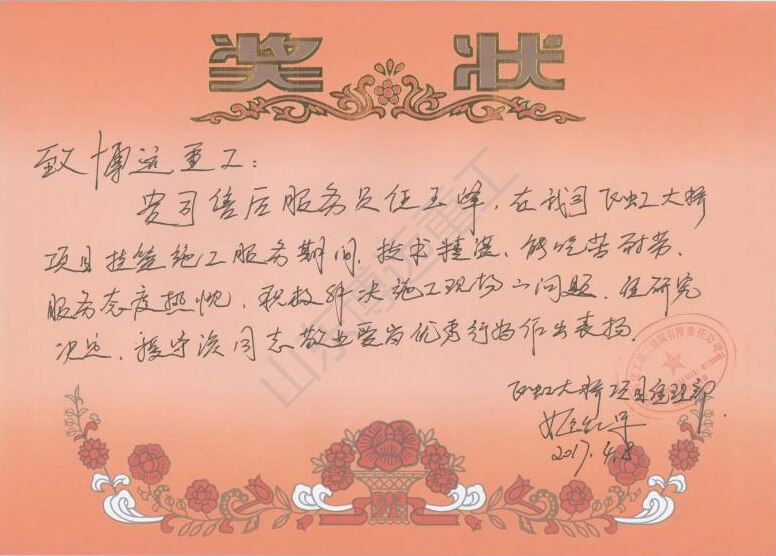 奖状
致博远重工:
贵司售后服务员任玉峰,在我司飞虹大桥
项目挂篮施工服务期间,技术精湛、能吃苦耐劳、
服务态度热忱,积极解决施工现场的问题,经研究
决定,授予该同志敬业爱岗优秀行为作出表扬.
飞虹大桥项目经理部
2017.4.8
山东博远重工